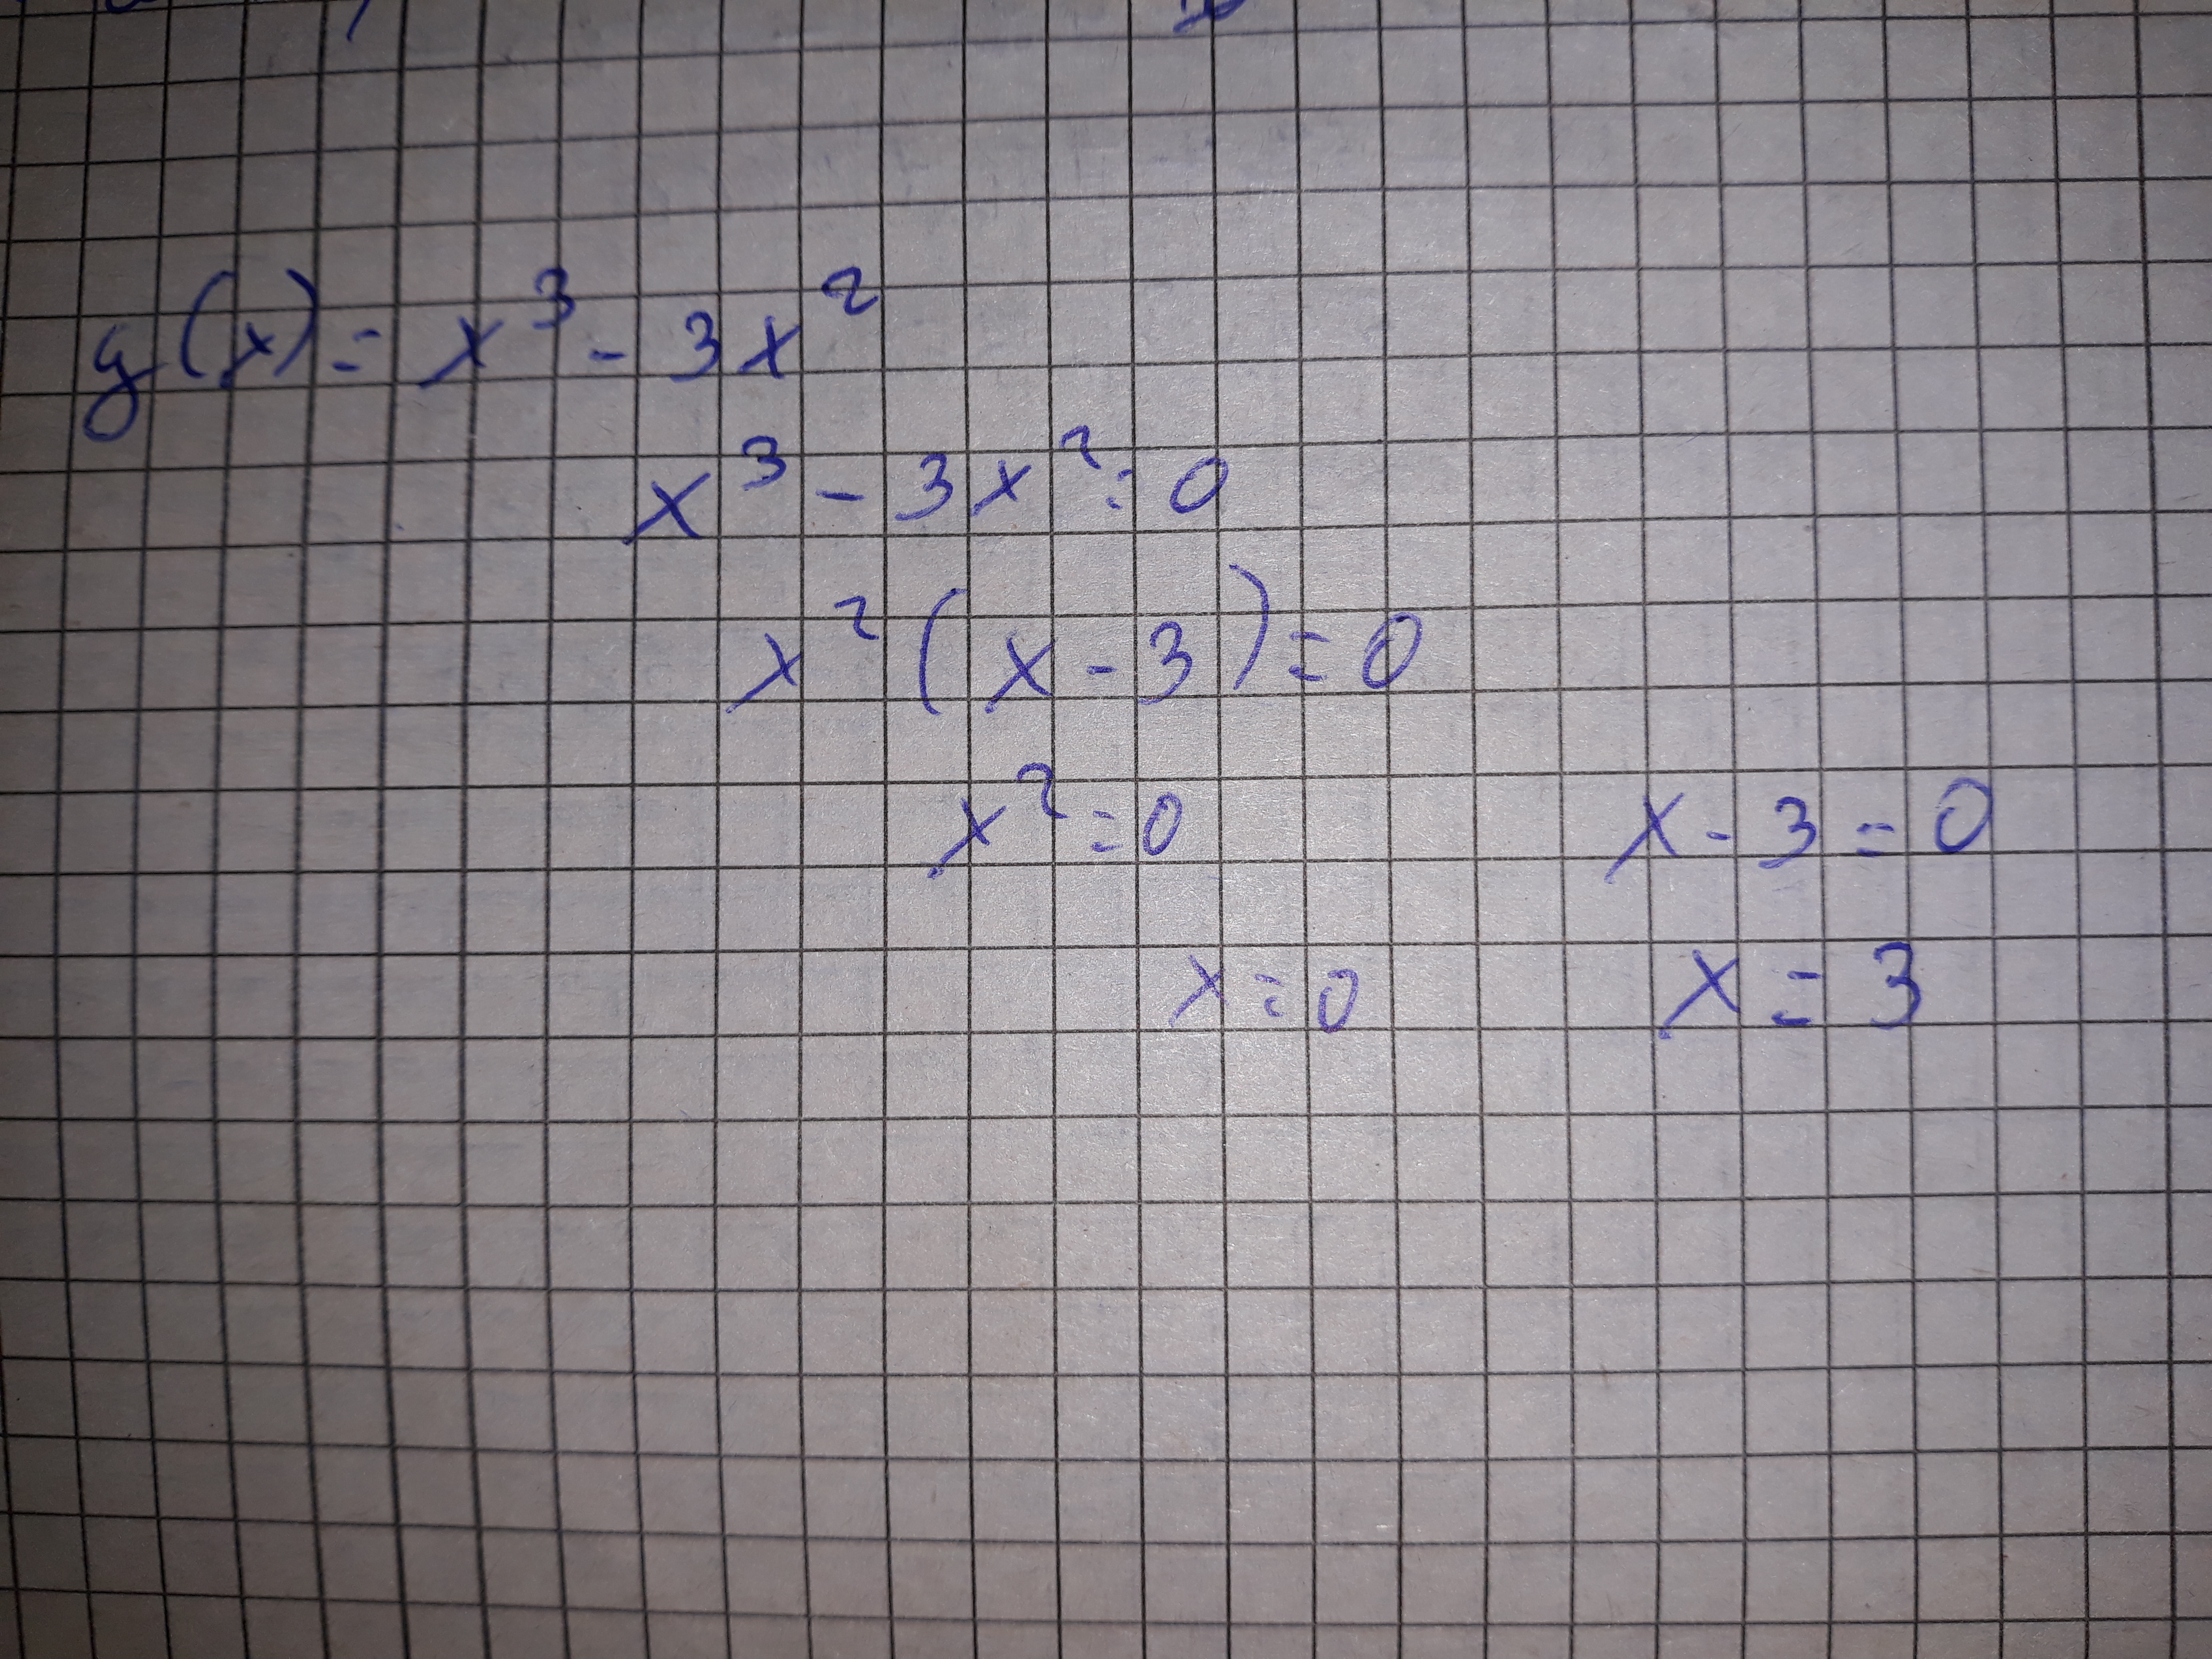 g(x) = x³ - 3x²
x³ - 3x² = 0
x² (x - 3) = 0
x² = 0 x - 3 = 0
x = 0 x = 3